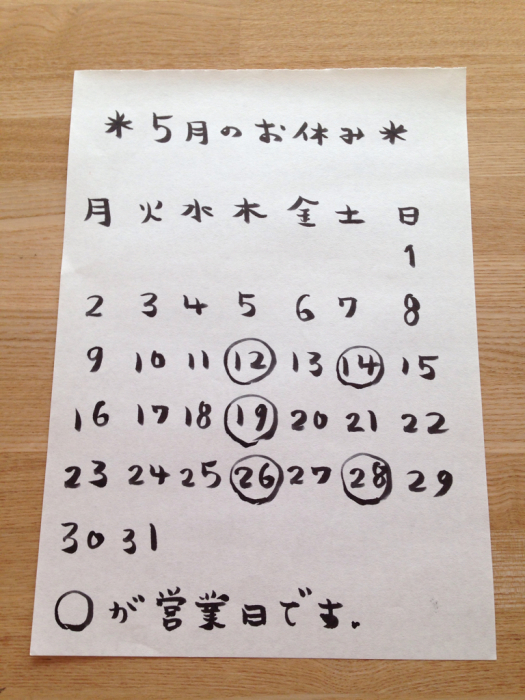 *5月のお休み*
月 火 水 木 金 土 日
1
2 3 4 5 6 7 8
9 10 11 12 13 14 15
16 17 18 19 20 21 22
23 24 25 26 27 28 29
30 31
○が営業日です。